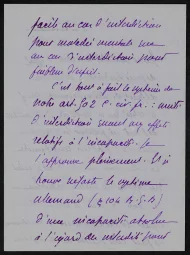 facile au cas d'interdiction
pour maladie mentale ou
au cas d'interdiction pour
faiblesse d'esprit.
C'est tout à fait le système de
notre art. 502 c. civ. fr. :
d'interdiction quant aux effets
relatifs à l'incapacité. Je
l'approuve pleinement. Et je
trouve néfaste le système
allemand (§ 104 B.G.B)
d'une incapacité absolue
à l'égard des interdits pour